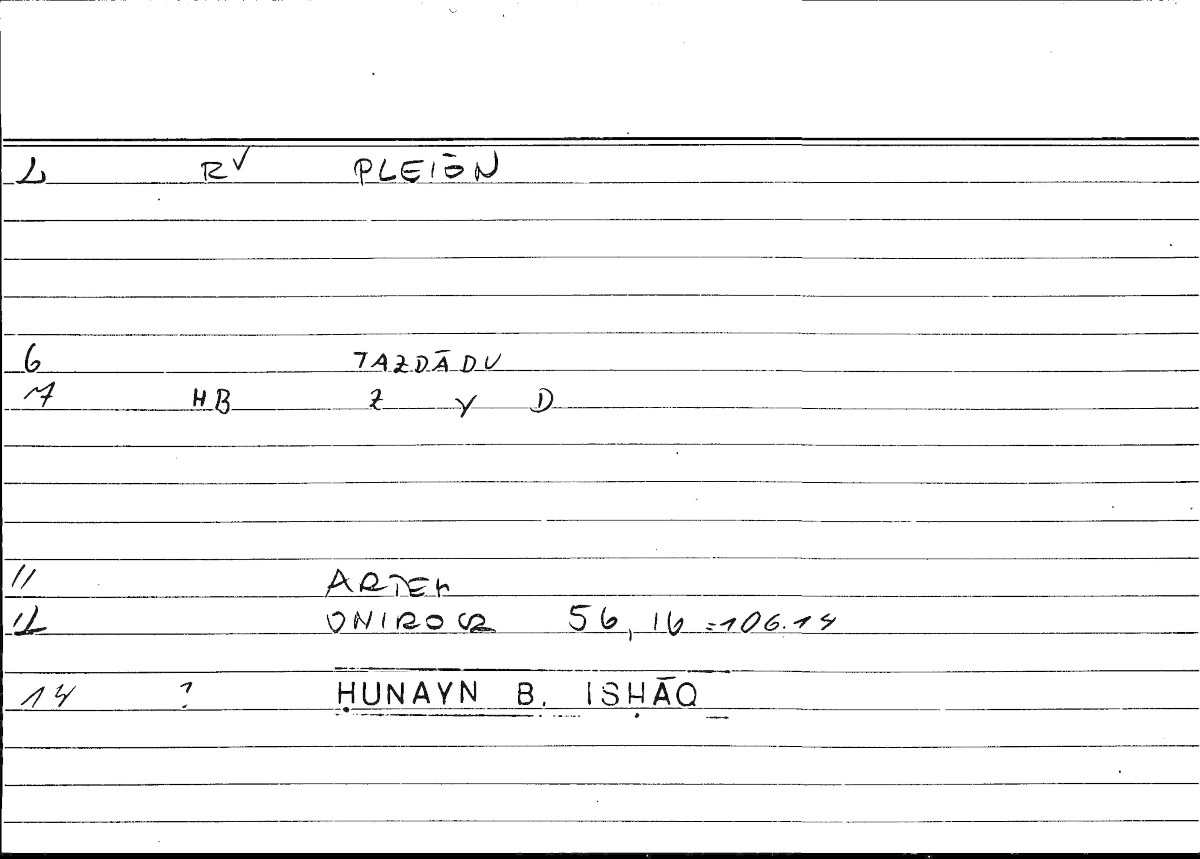 2 RV PLEIŌN
6 TAZDĀDU
7 HB Z Y D
11 ARTEM
12 ONIROCR 56,16 =106.14
14 ? ḤUNAYN B. ISḤĀQ